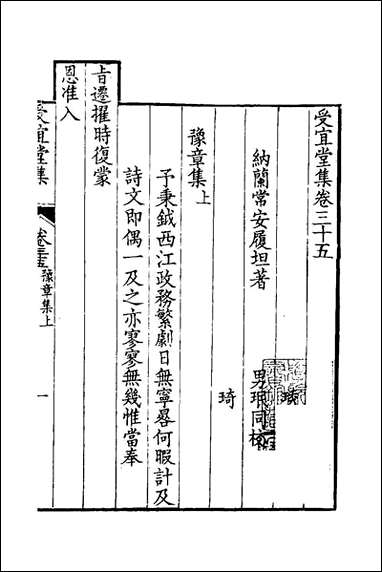 受宜堂集卷三十五
納蘭常安履坦著
男珉同校
琦
豫章集上
予秉鉞西江政務繁劇日無寧晷何暇計及
詩文即偶一及之亦寥寥無幾惟當奉
旨遷擢時復蒙
恩准入
受宜堂集 卷三十五 豫章集上 一